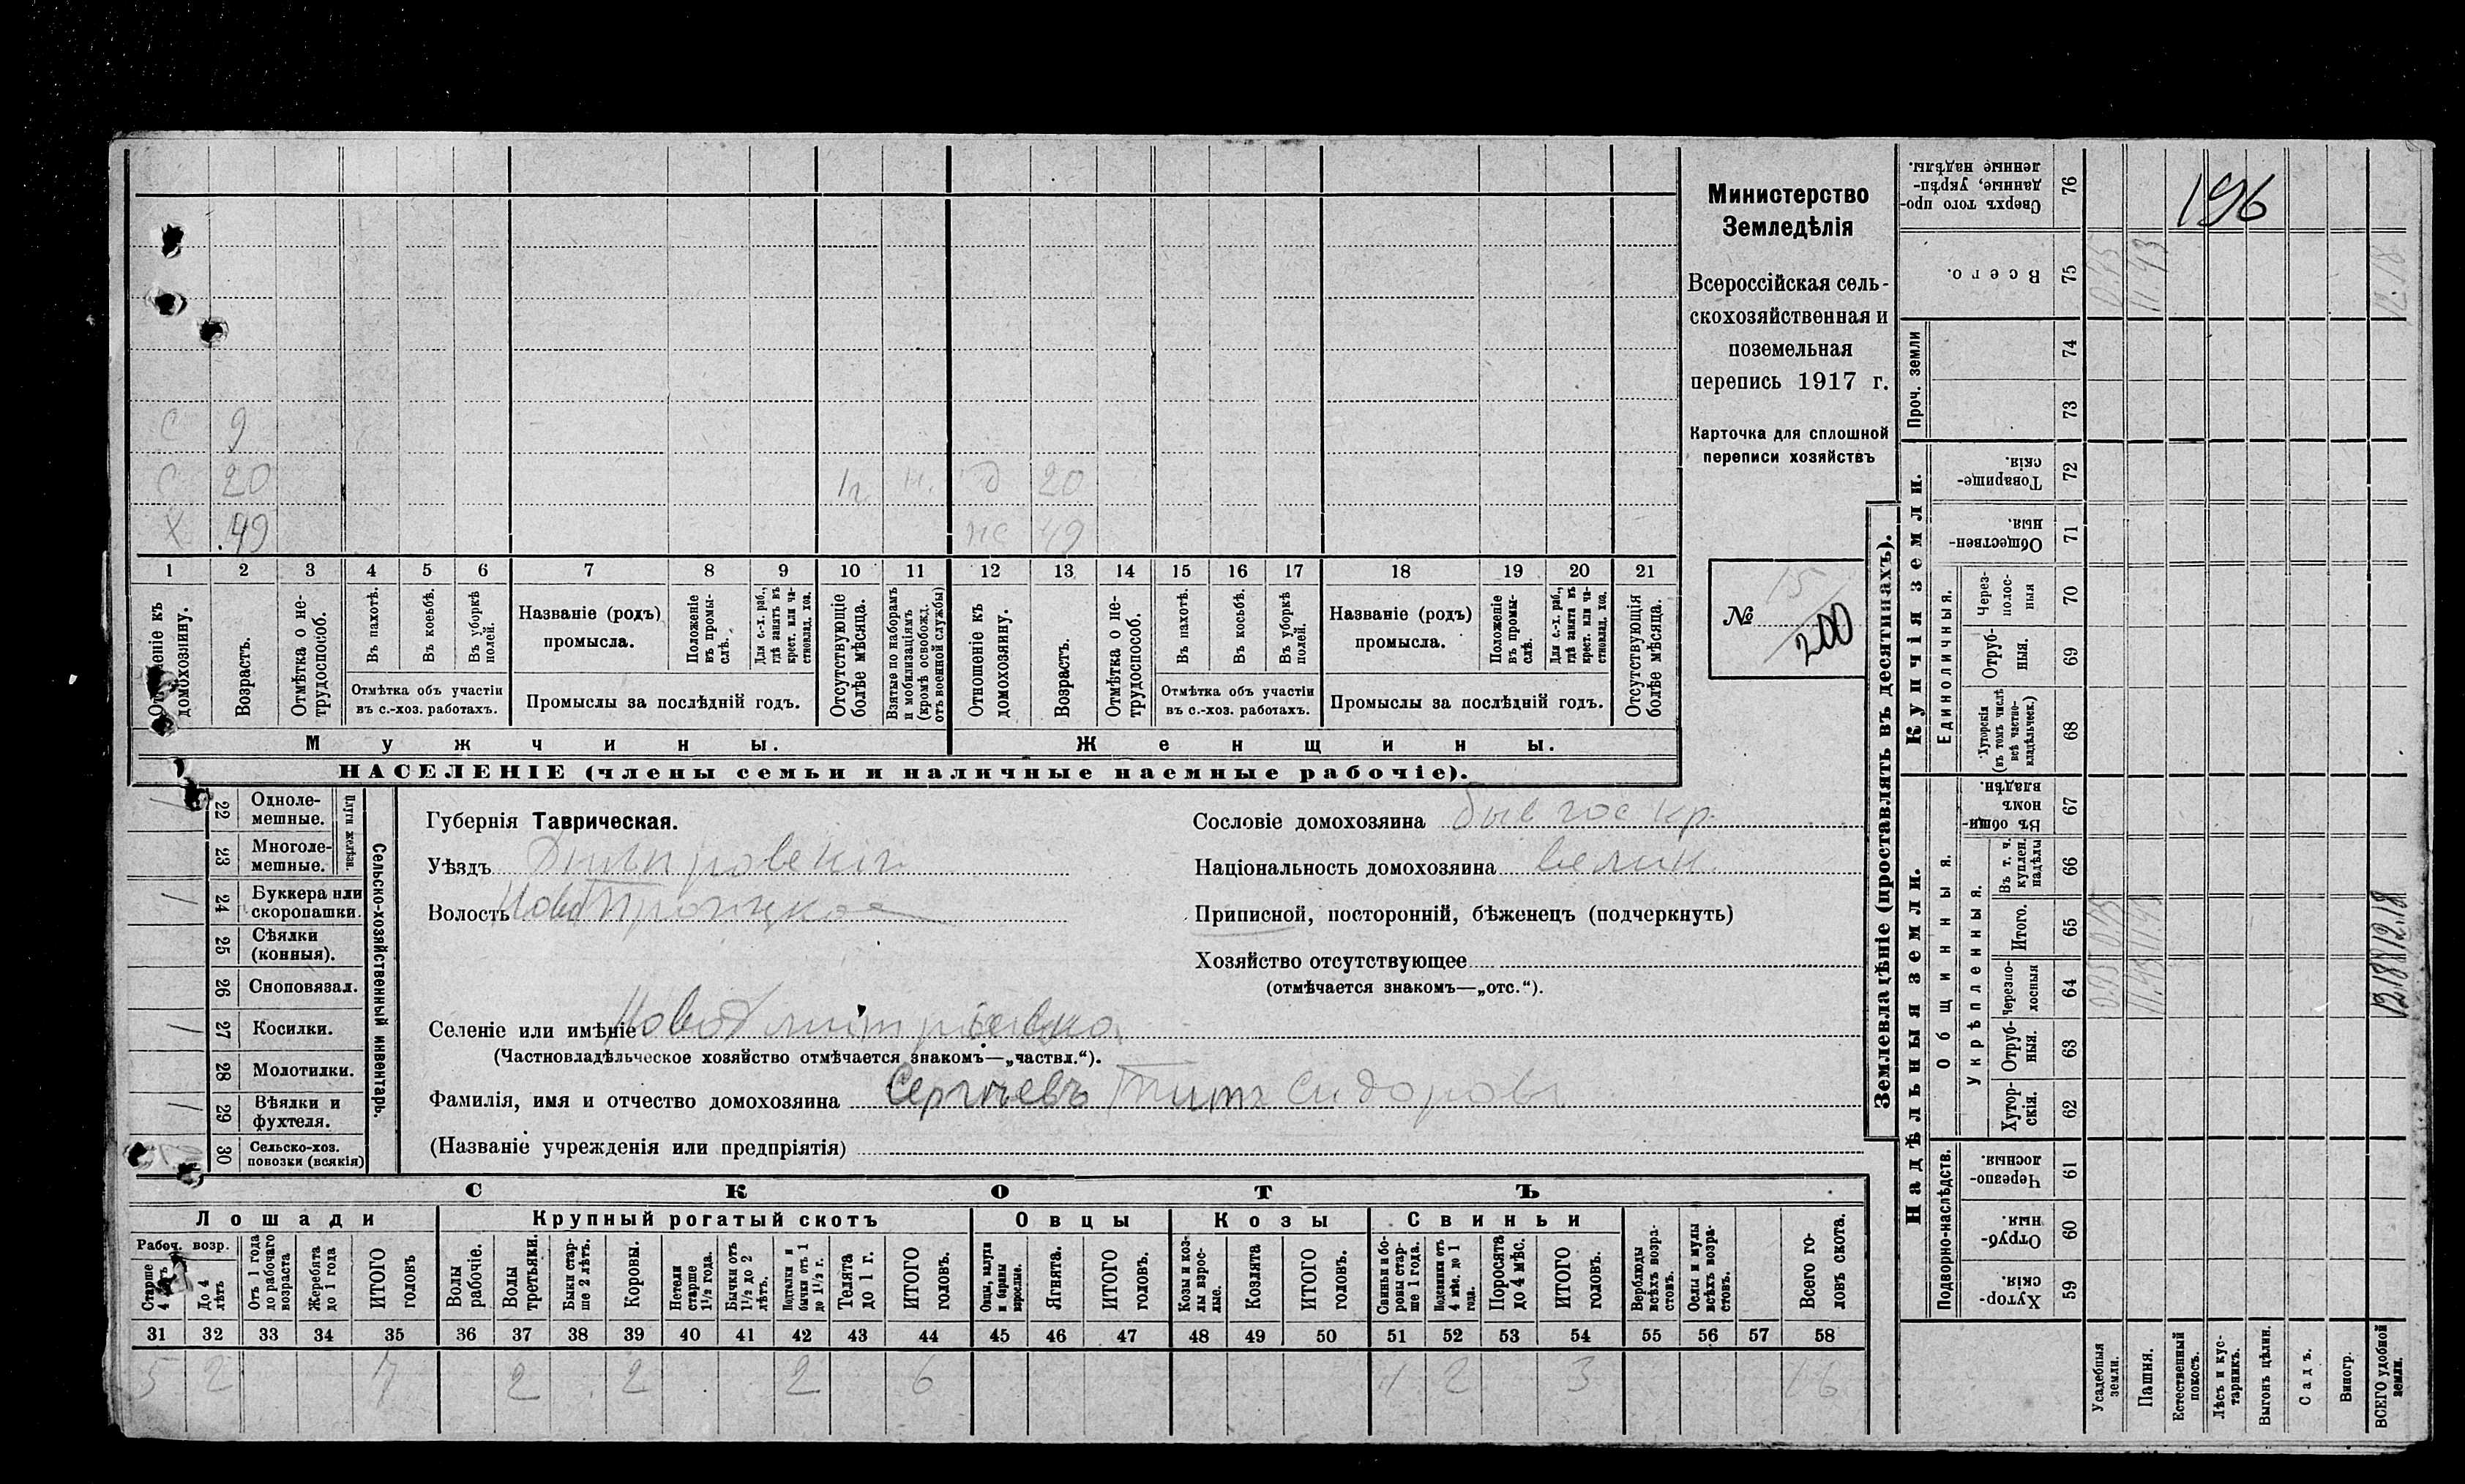 196
Министерство
Земледѣлія
Всероссійская сель-
скохозяйственная и
поземельная
перепись 1917 г.
Карточка для сплошной
переписи хозяйствъ
№ 15
200
С 9
С 20 1 г. н. д 20
Х 49 49
1 2 3 4 5 6 7 8 9 10 11 12 13 14 15 16 17 18 19 20 21
Отношеніе къ домохозяину.
Возрастъ.
Отмѣтка о не-
трудоспособ.
Въ пахотѣ.
Въ косьбѣ.
Въ уборкѣ
полей.
Отмѣтка объ участіи
въ с.-хоз. работахъ.
Названіе (родъ)
промысла.
Положеніе
въ промы-
слѣ.
Для с.-х. раб.,
гдѣ занятъ въ
крест. или ча-
стновлад. хоз.
Промыслы за послѣдній годъ.
Отсутствующіе
болѣе мѣсяца.
Взятые по наборамъ
и мобилизаціямъ
(кромѣ освобожд.
отъ военной службы)
Отношеніе къ
домохозяину.
Возрастъ.
Отмѣтка о не-
трудоспособ.
Въ пахотѣ.
Въ косьбѣ.
Въ уборкѣ
полей.
Отмѣтка объ участіи
въ с.-хоз. работахъ.
Названіе (родъ)
промысла.
Положеніе
въ промы-
слѣ.
Для с.-х. раб.,
гдѣ занята въ
крест. или ча-
стновлад. хоз.
Промыслы за послѣдній годъ.
Отсутствующія
болѣе мѣсяца.
Мужчины.
Женщины.
НАСЕЛЕНІЕ (члены семьи и наличные наемные рабочіе).
Сельско-хозяйственный инвентарь.
Плуги желѣзн.
22 Одноле-
мешные.
23 Многоле-
мешные.
24 Буккера или
скоропашки.
25 Сѣялки
(конныя).
26 Сноповязал.
27 Косилки.
28 Молотилки.
29 Вѣялки и
фухтеля.
30 Сельско-хоз.
повозки (всякія)
Губернія Таврическая.
Уѣздъ Днѣпровскій
Волость НовоТроицкое
Селеніе или имѣніе НовоДмитріевка
(Частновладѣльческое хозяйство отмѣчается знакомъ—„частвл.“).
Фамилія, имя и отчество домохозяина Сергѣевъ Титъ Сидоровъ
(Названіе учрежденія или предпріятія)
Сословіе домохозяина быв гос кр.
Національность домохозяина велик.
Приписной, посторонній, бѣженецъ (подчеркнуть)
Хозяйство отсутствующее
(отмѣчается знакомъ—„отс.“).
СКОТЪ
Лошади
Крупный рогатый скотъ
Овцы
Козы
Свиньи
Рабоч. возр.
Старше
4 лѣтъ
До 4
лѣтъ
Отъ 1 года
до рабочаго
возраста
Жеребята
до 1 года
ИТОГО
головъ
Волы
рабочіе.
Волы
третьяки.
Быки стар-
ше 2 лѣтъ.
Коровы.
Нетели
старше
1½ года.
Бычки отъ
1½ до 2
лѣтъ.
Подтелки и
бычки отъ 1
до 1½ г.
Телята
до 1 г.
ИТОГО
головъ.
Овцы, валухи
и бараны
взрослые.
Ягнята.
ИТОГО
головъ.
Козы и коз-
лы взрос-
лые.
Козлята
ИТОГО
головъ.
Свиньи и бо-
ровы стар-
ше 1 года.
Подсвинки отъ
4 мѣс. до 1
года.
Поросята
до 4 мѣс.
ИТОГО
головъ.
Верблюды
всѣхъ возра-
стовъ.
Ослы и мулы
всѣхъ возра-
стовъ.
Всего го-
ловъ скота.
31 32 33 34 35 36 37 38 39 40 41 42 43 44 45 46 47 48 49 50 51 52 53 54 55 56 57 58
5 2 7 2 2 2 6 1 2 3 16
Землевладѣніе (проставлять въ десятинахъ).
Надѣльныя земли.
Купчія земли.
Проч. земли
Подворно-наслѣдств.
Общинныя.
Укрѣпленныя.
Единоличныя.
Сверхъ того про-
данные, укрѣп-
ленные надѣлы. 76
Всего. 75
74
73
Товарище-
скія. 72
Обществен-
ныя. 71
Через-
полос-
ныя 70
Отруб-
ныя. 69
Хуторскія
(въ томъ числѣ
всѣ частно-
владѣльческ.) 68
Въ общин-
номъ
владѣн. 67
Въ т. ч.
куплен.
надѣлы 66
Итого. 65
Черезпо-
лосныя 64
Отруб-
ныя. 63
Хутор-
скія. 62
Черезпо-
лосныя. 61
Отруб-
ныя. 60
Хутор-
скія. 59
Усадебныя
земли. 0.75 0.75 0.75
Пашня. 11.43 11.43 11.43
Естественный
покосъ.
Лѣсъ и кус-
тарникъ.
Выгонъ цѣлин.
Садъ.
Виногр.
ВСЕГО удобной
земли. 12.18 12.18 12.18